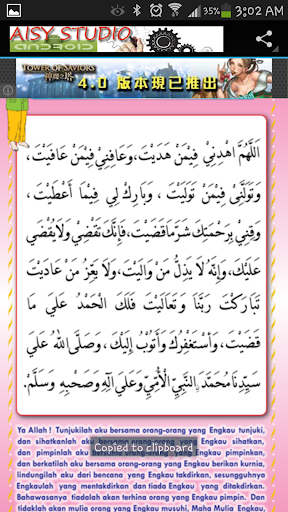 35%
3:02 AM
AISY STUDIO
ANDROID
TOWER OF SAVIORS
神魔之塔
4.0 版本現已推出
اَللَّهُمَّ اهْدِنِيْ فِيْمَنْ هَدَيْتَ، وَعَافِنِيْ فِيْمَنْ عَافَيْتَ،
وَتَوَلَّنِيْ فِيْمَنْ تَوَلَّيْتَ، وَبَارِكْ لِيْ فِيْمَا أَعْطَيْتَ،
وَقِنِيْ بِرَحْمَتِكَ شَرَّ مَا قَضَيْتَ، فَإِنَّكَ تَقْضِيْ وَلَا يُقْضَى
عَلَيْكَ، وَإِنَّهُ لَا يَذِلُّ مَنْ وَالَيْتَ، وَلَا يَعِزُّ مَنْ عَادَيْتَ
تَبَارَكْتَ رَبَّنَا وَتَعَالَيْتَ فَلَكَ الْحَمْدُ عَلَى مَا
قَضَيْتَ، وَأَسْتَغْفِرُكَ وَأَتُوْبُ إِلَيْكَ، وَصَلَّى اللهُ عَلَى
سَيِّدِنَا مُحَمَّدٍ النَّبِيِّ الْأُمِّيِّ وَعَلَى آلِهِ وَصَحْبِهِ وَسَلَّمَ.
Ya Allah ! Tunjukilah aku bersama orang-orang yang Engkau tunjuki,
dan sihatkanlah aku bersama orang-orang yang Engkau sihatkan,
dan pimpinlah aku bersama orang-orang yang Engkau pimpinkan,
dan berkatilah aku bersama orang-orang yang Engkau berikan kurnia,
lindungilah aku dari bencana yang Engkau takdirkan, sesungguhnya
Engkaulah yang mentakdirkan dan tiada Engkau yang ditakdirkan.
Bahawasanya tiadalah akan terhina orang yang Engkau pimpin. Dan
tidaklah akan mulia orang yang Engkau musuhi, Maha Mulia Engkau,
Copied to clipboard